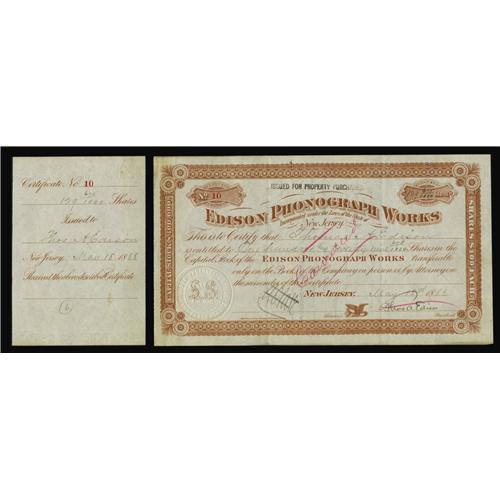 Certificate No 10
Shares
Issued to
Thos A Edison
New Jersey, May 18 1888
Received the above described Certificate
(6)
ISSUED FOR PROPERTY PURCHASED
No 10
EDISON PHONOGRAPH WORKS
Incorporated under the Laws of the State of
New Jersey
This is to Certify that Thomas A Edison
is entitled to One Hundred Shares in the
Capital Stock of the EDISON PHONOGRAPH WORKS transferable
only on the Books of the Company in person or by Attorney on
the surrender of this Certificate
NEW JERSEY, May 18th 1888
Thos A Edison
President
SHARES $100 EACH